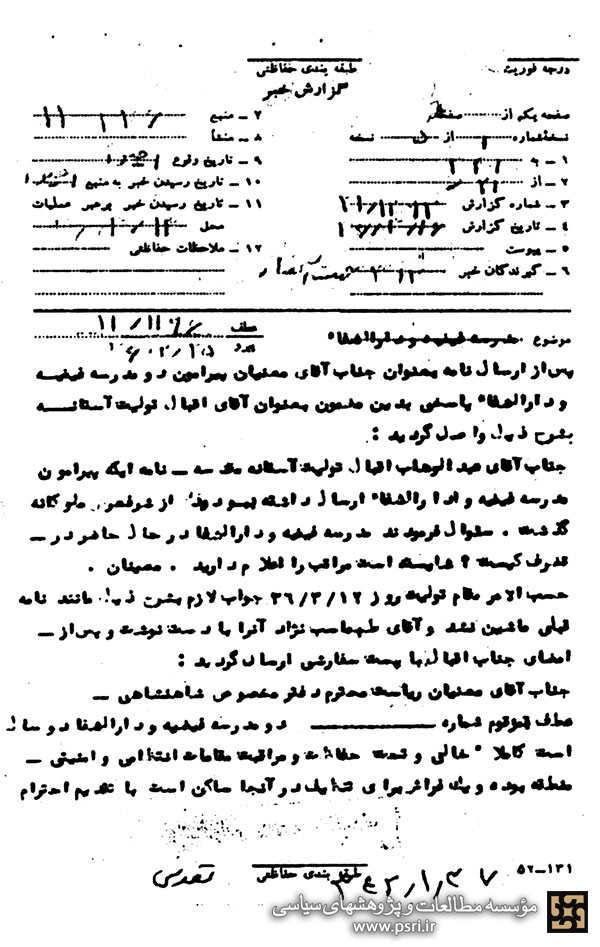 درجه فوریت
طبقه بندی حفاظتی
گزارش خبر
صفحه یکم از صفحه
نسخه شماره از نسخه
۱ ـ به ۳۴۱
۲ ـ از ۲۱
۳ ـ شماره گزارش
۴ ـ تاریخ گزارش
۵ ـ پیوست
۶ ـ گیرندگان خبر
۷ ـ منبع
۸ ـ منشأ
۹ ـ تاریخ وقوع
۱۰ ـ تاریخ رسیدن خبر به منبع
۱۱ ـ تاریخ رسیدن خبر برهبر عملیات
محل
۱۲ ـ ملاحظات حفاظتی
موضوع مدرسه فیضیه و دارالشفاء
عطف
پس از ارسال نامه بعنوان جناب آقای معینیان پیرامون دو مدرسه فیضیه
و دارالشفاء پاسخی بدین مضمون بعنوان آقای اقبال تولیت آستانه
بشرح ذیل واصل گردید :
جناب آقای عبدالوهاب اقبال تولیت آستانه مقدسه ـ نامه ایکه پیرامون
مدرسه فیضیه و دارالشفاء ارسال داشته بودید از شرفعرض ملوکانه
گذشت . سئوال فرمودند مدرسه فیضیه و دارالشفا در حال حاضر در ـ
تصرف کیست ؟ شایسته است مراتب را اعلام دارید . معینیان .
حسب الامر مقام تولیت روز ۳۶/۳/۱۲ جواب لازم بشرح ذیل مانند نامه
قبلی ماشین نشد و آقای طهماسب نژاد آنرا با دست نوشت و پس از ـ
امضای جناب اقبال با پست سفارشی ارسال گردید :
جناب آقای معینیان ریاست محترم دفتر مخصوص شاهنشاهی ـ
عطف شماره ـــــــ دو مدرسه فیضیه و دارالشفا دو سال
است کاملاً خالی و تحت حفاظت و مراقبت مقامات انتظامی و امنیتی ـ
منطقه بوده و یک فراش برای تنظیف در آنجا ساکن است با تقدیم احترام
۵۲ـ۱۳۱
طبقه بندی حفاظتی
مؤسسه مطالعات و پژوهشهای سیاسی
www.psri.ir